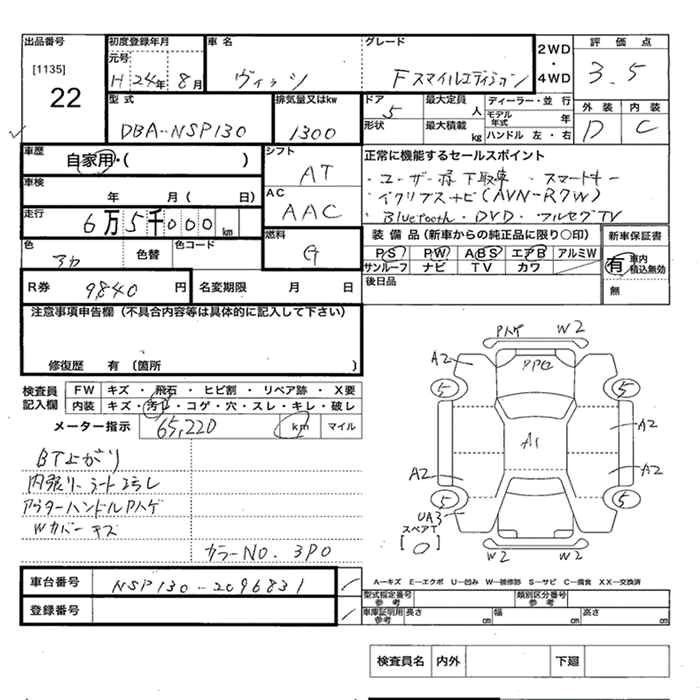 出品番号
[1135]
22
初度登録年月
元号
H 24年 8月
車名
ヴィッツ
グレード
Fスマイルエディション
2WD
・
4WD
評価点
3.5
外装 内装
D C
型式
DBA-NSP130
排気量又はkw
1300
ドア
5
形状
最大定員 人
最大積載 kg
ディーラー・並行
モデル年式 年
ハンドル 左・右
車歴
自家用・( )
シフト
AT
正常に機能するセールスポイント
・ユーザー様下取車 ・スマートキー
・イクリプスナビ(AVN-R7W)
・Bluetooth・DVD・フルセグTV
車検
年 月 ( 日)
AC
AAC
走行
6万5千000km
色
アカ
色替
色コード
燃料
G
装備品(新車からの純正品に限り〇印)
PS PW ABS エアB アルミW
サンルーフ ナビ TV カワ
後日品
新車保証書
有 車内積込無効
無
R券
9840円
名変期限 月 日
注意事項申告欄(不具合内容等は具体的に記入して下さい)
修復歴 有 (箇所 )
検査員記入欄
FW キズ・飛石・ヒビ割・リペア跡・X要
内装 キズ・汚れ・コゲ・穴・スレ・キレ・破レ
メーター指示
65,220
km マイル
BT上がり
内張り、シートヨゴレ
アウターハンドルPハゲ
Wカバーキズ
カラーNO. 3P0
Pハゲ W2
A2 PPG
5 5
A1
A2
A2 A2
5 5
UA3
スペアT
[0]
W2 W2
車台番号
NSP130-2096831
登録番号
A―キズ E―エクボ U―凹み W―補修跡 S―サビ C―腐食 XX―交換済
型式指定番号 参考
類別区分番号 参考
車庫証明用 参考
長さ cm
幅 cm
高さ cm
検査員名 内外 下廻